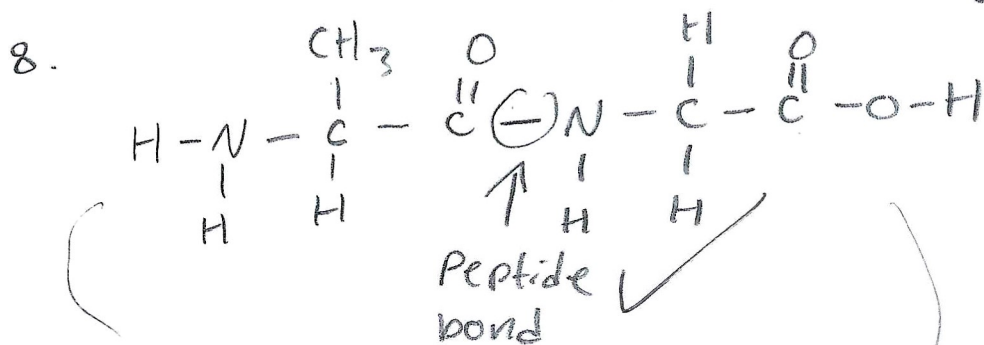 8.
CH3 O H O
H-N-C-C-N-C-C-O-H
H H H H
Peptide
bond